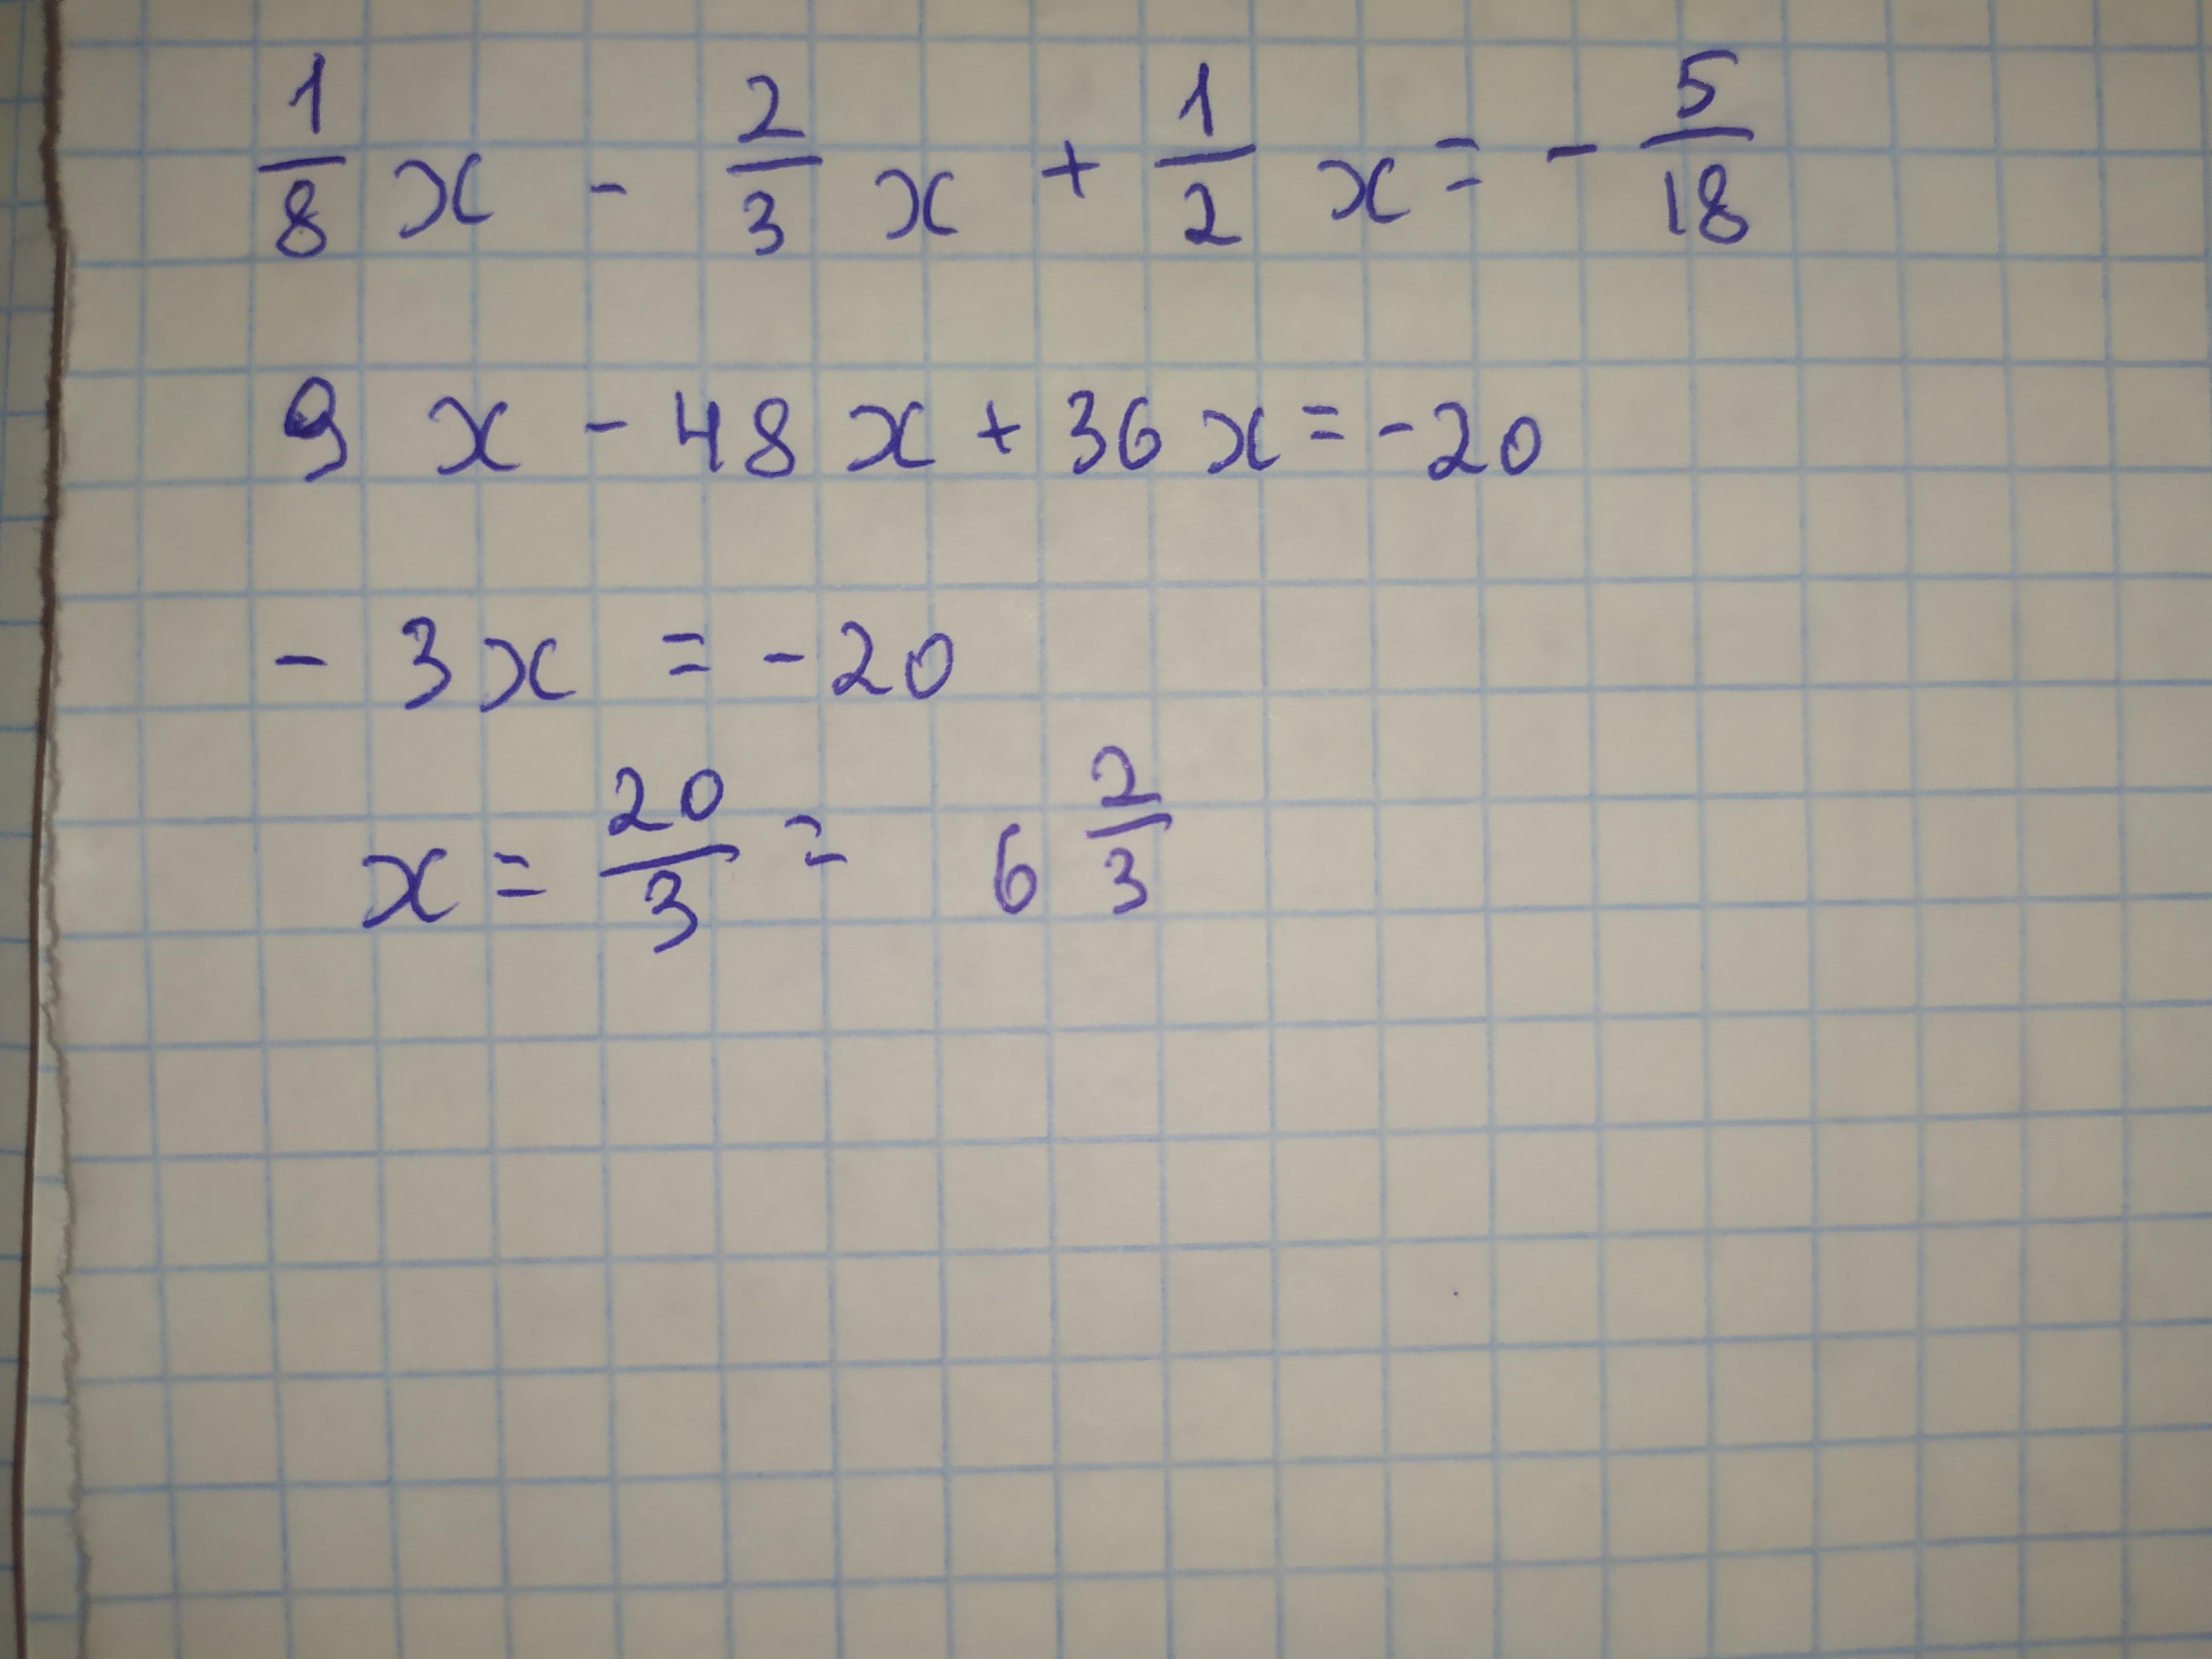 1/8 x - 2/3 x + 1/2 x = - 5/18
9 x - 48 x + 36 x = -20
- 3x = -20
x = 20/3 = 6 2/3